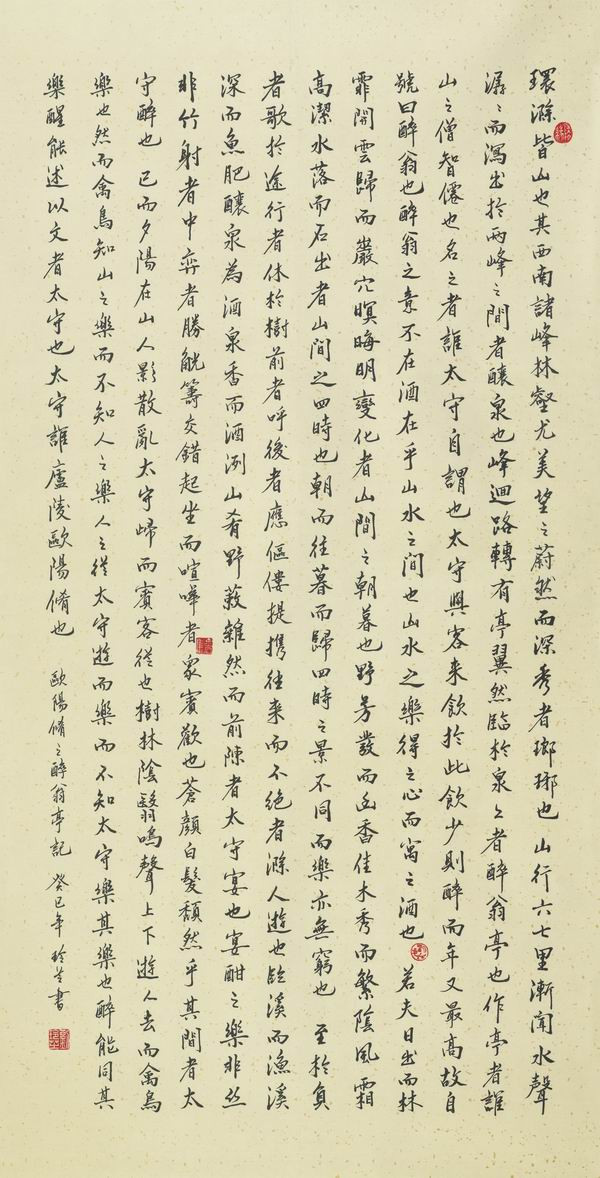 環滁皆山也其西南諸峰林壑尤美望之蔚然而深秀者瑯琊也山行六七里漸聞水聲
潺〻而瀉出於兩峰之間者釀泉也峰迴路轉有亭翼然臨於泉上者醉翁亭也作亭者誰
山之僧智僊也名之者誰太守自謂也太守與客來飲於此飲少則醉而年又最高故自
號曰醉翁也醉翁之意不在酒在乎山水之间也山水之樂得之心而寓之酒也若夫日出而林
霏開雲歸而巖穴暝晦明變化者山間之朝暮也野芳發而幽香佳木秀而繁陰風霜
高潔水落而石出者山间之四時也朝而往暮而歸四時之景不同而樂亦無窮也至於負
者歌於途行者休於樹前者呼後者應傴僂提攜往来而不绝者滁人遊也臨溪而漁溪
深而魚肥釀泉為酒泉香而酒洌山肴野蔌雜然而前陳者太守宴也宴酣之樂非丝
非竹射者中弈者勝觥籌交錯起坐而喧嘩者眾賓歡也蒼顏白髮頹然乎其間者太
守醉也已而夕陽在山人影散亂太守歸而賓客從也樹林陰翳鳴聲上下遊人去而禽鳥
樂也然而禽鳥知山之樂而不知人之樂人之從太守遊而樂而不知太守樂其樂也醉能同其
樂醒能述以文者太守也太守誰廬陵歐陽脩也
歐陽脩之醉翁亭記癸巳年玲芝書